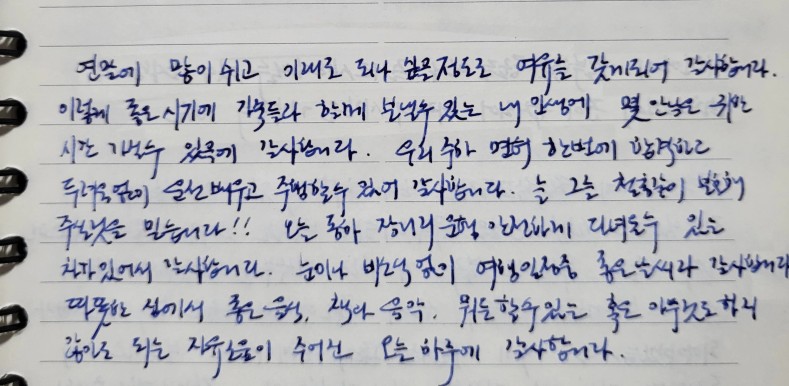 연말에 많이 쉬고 이래도 되나 싶을정도로 여유를 갖게되어 감사합니다.
이렇게 좋은 시기에 가족들과 함께 보낼수 있는 내 인생에 몇 안남은 귀한
시간 가질수 있음에 감사합니다. 우리 주하 면허 한번에 합격하고
두려움없이 운전 배우고 주행할수 있어 감사합니다. 늘 그를 철통같이 보호해
주실것을 믿습니다!! 오늘 통하 장거리 운행 안전하게 다녀올수 있는
차가 있어서 감사합니다. 눈이나 바람 없이 여행일정중 좋은날씨라 감사합니다
따뜻한 집에서 좋은 음식, 책과 음악, 뭐든 할수있는 혹은 아무것도 하지
않아도 되는 자유로움이 주어진 오늘 하루에 감사합니다.